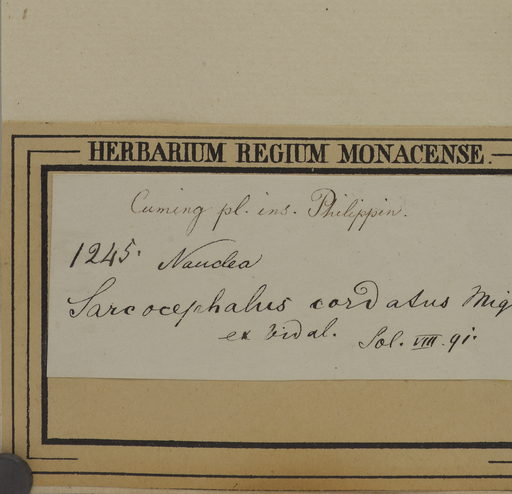 HERBARIUM REGIUM MONACENSE.
Cuming pl. ins. Philippin.
1245. Nauclea
Sarcocephalus cordatus Miq
ex Vidal. Sol. VIII. 91.